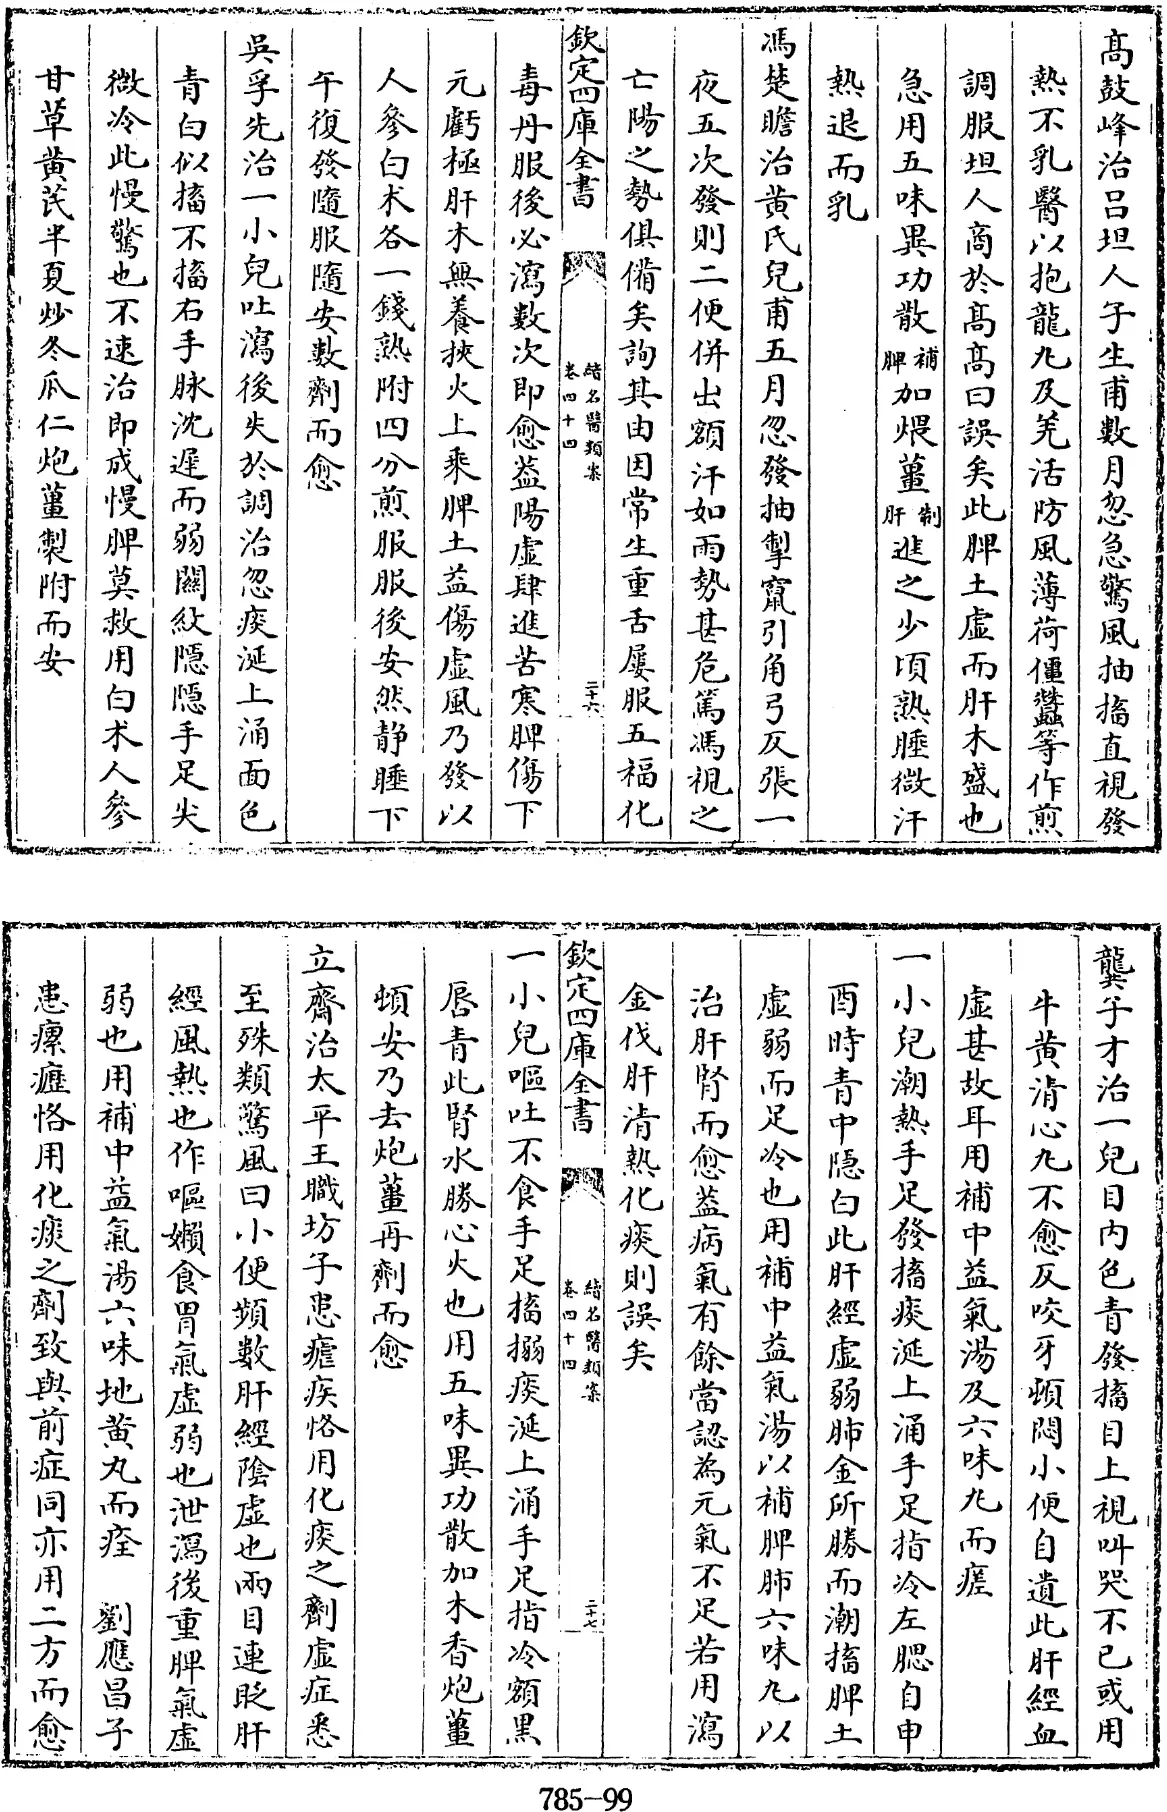 高鼓峰治吕坦人子生甫數月忽急驚風抽搐直視發
熱不乳醫以抱龍丸及羌活防風薄荷僵蠶等作煎
調服坦人商於髙髙曰誤矣此脾土虛而肝木盛也
急用五味異功散補脾加煨薑制肝進之少頃熟睡微汗
熱退而乳
馮楚瞻治黄氏兒甫五月忽發抽掣竄引角弓反張一
夜五次發則二便併出額汗如雨勢甚危篤馮視之
亡陽之勢俱備矣詢其由因常生重舌屢服五福化
欽定四庫全書
續名醫類案
卷四十四
二十六
毒丹服後必瀉數次即愈益陽虛肆進苦寒脾傷下
元虧極肝木無養挾火上乘脾土益傷虛風乃發以
人參白术各一錢熟附四分煎服服後安然靜睡下
午復發隨服隨安數劑而愈
吳孚先治一小兒吐瀉後失於調治忽痰涎上涌面色
青白似搐不搐右手脉沈遲而弱關紋隱隱手足尖
微冷此慢驚也不速治即成慢脾莫救用白术人參
甘草黄芪半夏炒冬瓜仁炮薑製附而安
龔子才治一兒目内色青發搐目上視叫哭不已或用
牛黄清心丸不愈反咬牙頓悶小便自遺此肝經血
虛甚故耳用補中益氣湯及六味丸而瘥
一小兒潮熱手足發搐痰涎上涌手足指冷左腮自申
酉時青中隱白此肝經虛弱肺金所勝而潮搐脾土
虛弱而足冷也用補中益氣湯以補脾肺六味丸以
治肝腎而愈益病氣有餘當認為元氣不足若用瀉
金伐肝清熱化痰則誤矣
欽定四庫全書
續名醫類案
卷四十四
二十七
一小兒嘔吐不食手足搐搦痰涎上涌手足指冷額黒
唇青此腎水勝心火也用五味異功散加木香炮薑
頓安乃去炮薑再劑而愈
立齋治太平王職坊子患瘧疾恪用化痰之劑虛症悉
至殊類驚風曰小便頻數肝經陰虛也兩目連眨肝
經風熱也作嘔嬾食胃氣虛弱也泄瀉後重脾氣虛
弱也用補中益氣湯六味地黄丸而痊　劉應昌子
患瘰癧恪用化痰之劑致與前症同亦用二方而愈
785-99